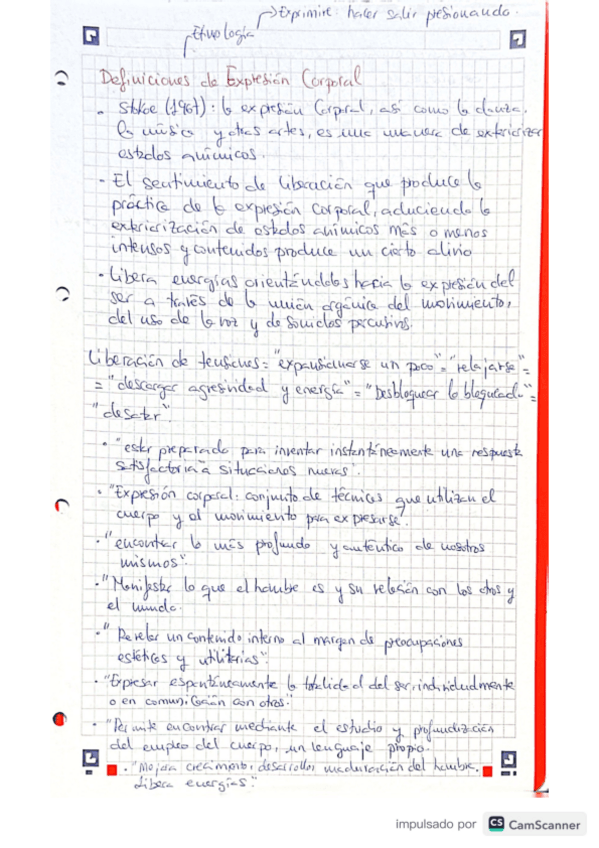 Exprimire: hacer salir presionando.
Etimología
Definiciones de Expresión Corporal
- Stokoe (1967): la expresión Corporal, así como la danza,
la música y otras artes, es una manera de exteriorizar
estados anímicos.
- El sentimiento de liberación que produce la
práctica de la expresión corporal, aduciendo la
exteriorización de estados anímicos más o menos
intensos y contenidos produce un cierto alivio
• Libera energías orientándolas hacia la expresión del
ser a través de la unión orgánica del movimiento,
del uso de la voz y de sonidos percutivos.
Liberación de tensiones = "expansionarse un poco" = "relajarse" =
= "descargar agresividad y energía" = "Desbloquear lo bloqueado" =
"desatar".
• "estar preparado para inventar instantáneamente una respuesta
satisfactoria a situaciones nuevas".
• "Expresión corporal: conjunto de técnicas que utilizan el
cuerpo y el movimiento para expresarse".
• "encontrar lo más profundo y auténtico de nosotros
mismos".
• "Manifestar lo que el hombre es y su relación con los otros y
el mundo.
• "Revelar un contenido interno al margen de preocupaciones
estéticas y utilitarias".
• "Expresar espontáneamente la totalidad del ser, individualmente
o en comunicación con otros."
• "Permite encontrar mediante el estudio y profundización
del empleo del cuerpo, un lenguaje propio.
• "Mejora crecimiento, desarrollo, maduración del hombre.
Libera energías."
impulsado por CS CamScanner